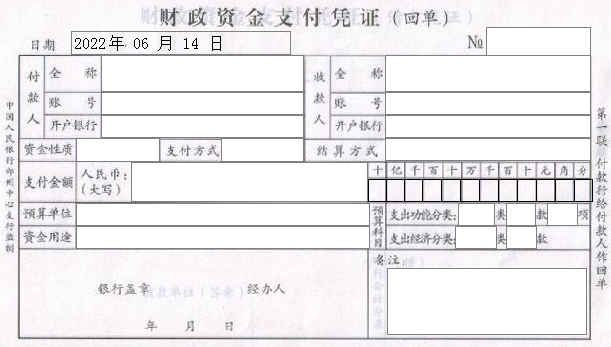 财政资金支付凭证（回单）
日期 2022年 06 月 14 日 №
付款人 全称 收款人 全称
账号 账号
开户银行 开户银行
资金性质 支付方式 结算方式
支付金额 人民币：（大写） 十 亿 千 百 十 万 千 百 十 元 角 分
预算单位 预算科目 支出功能分类： 类 款 项
资金用途 支出经济分类： 类 款
备注
银行盖章 经办人
年 月 日
中国人民银行郑州中心支行监制
第一联 付款行给付款人作回单